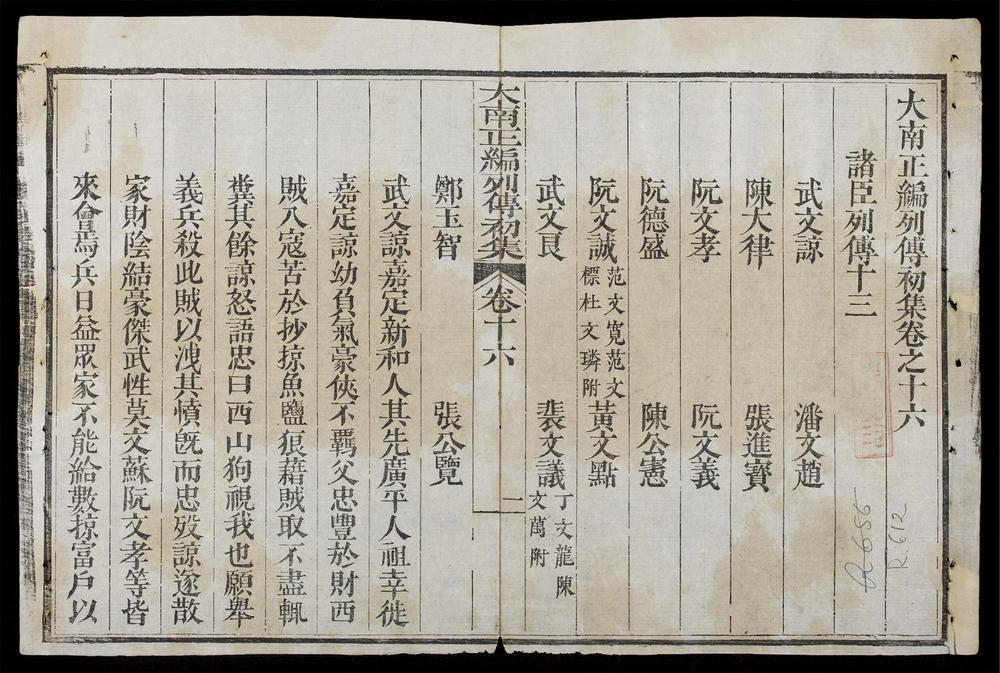 大南正編列傳初集卷之十六
諸臣列傳十三
武文諒 潘文趙
陳大律 張進寳
阮文孝 阮文義
阮德盛 陳公憲
阮文誠 范文寛范文標杜文璘附 黃文點
武文艮 裴文議 丁文龍陳文萬附
大南正編列傳初集 卷十六 一
鄭玉智 張公覽
武文諒嘉定新和人其先廣平人祖幸徙
嘉定諒幼負氣豪俠不羈父忠豐於財西
賊入寇苦於抄掠魚鹽狼藉賊取不盡輒
糞其餘諒怒語忠曰西山狗視我也願舉
義兵殺此賊以洩其憤旣而忠歿諒遂散
家財陰結豪傑武性莫文蘇阮文孝等皆
來會焉兵日益眾家不能給數掠富戶以
R.656
R.612